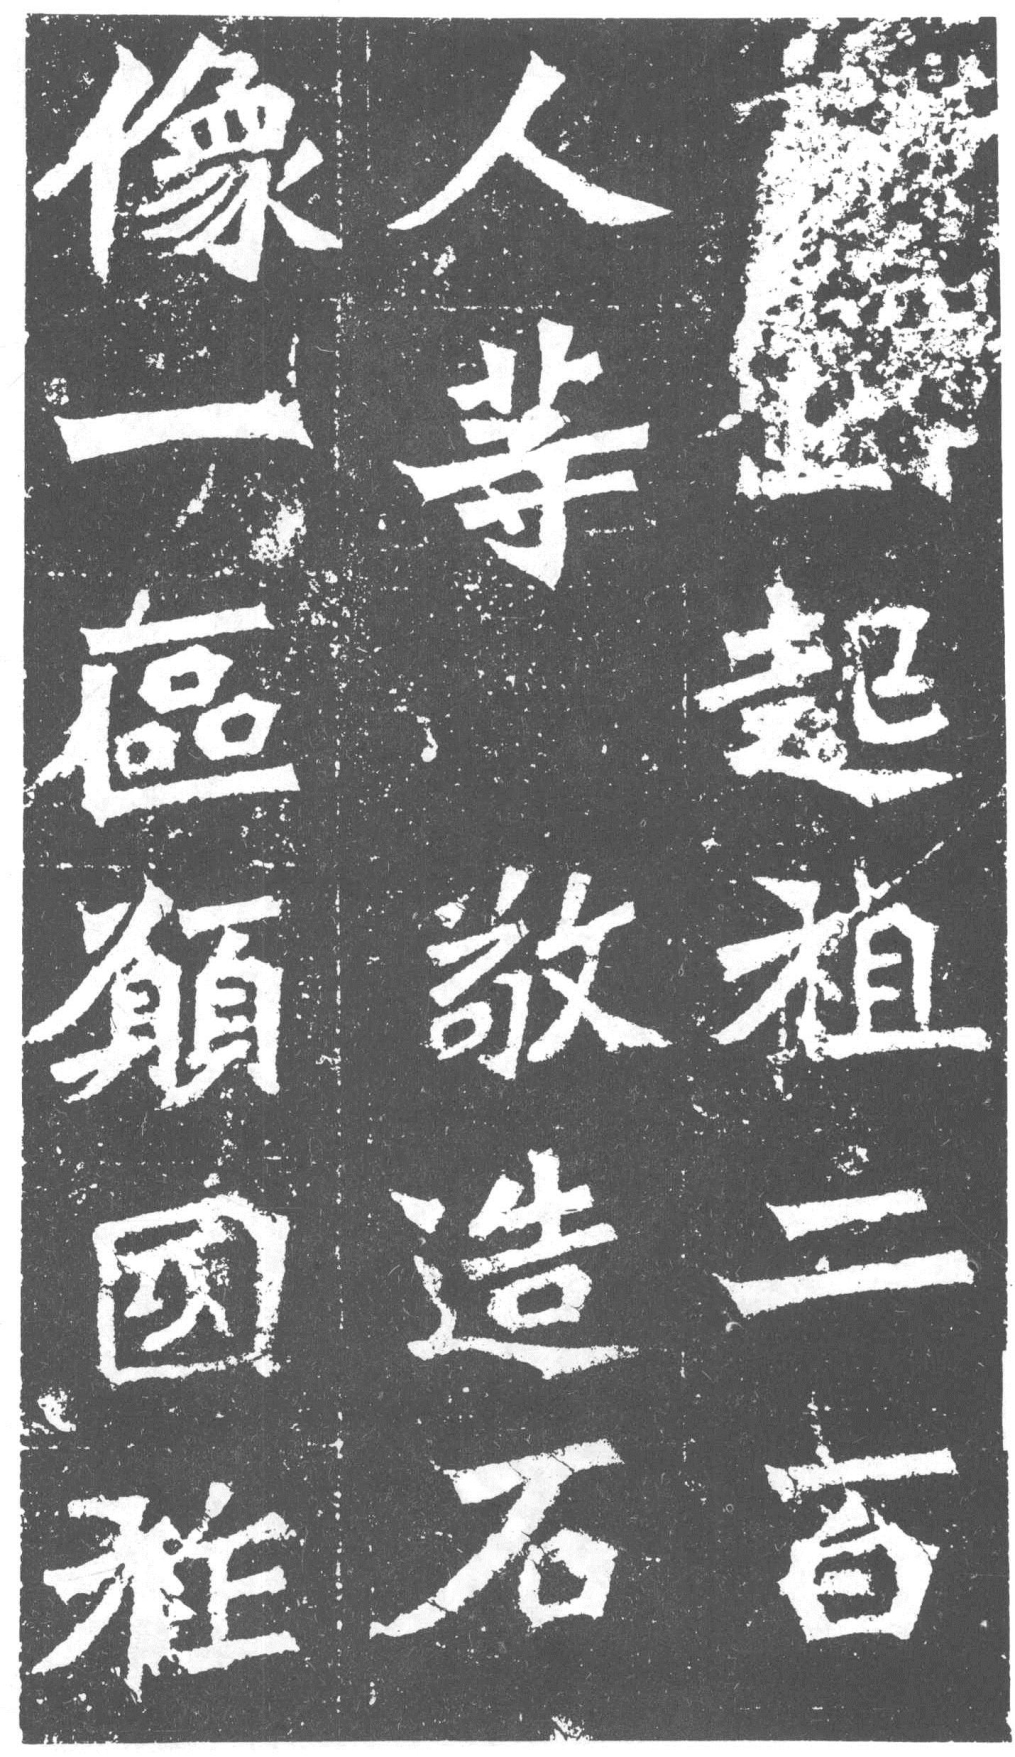 起祖二百
人等敬造石
像一區願國祚